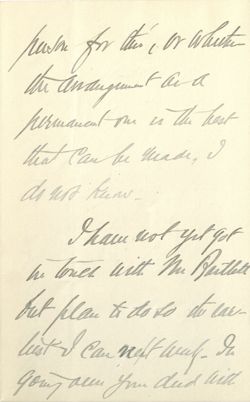 person for this, or whether
the arrangement as a
permanent one is the best
that can be made, I
do not know.
I have not yet got
in touch with Mr Bartlett
but plan to do so the ear-
liest I can next week. In
going over your deed with